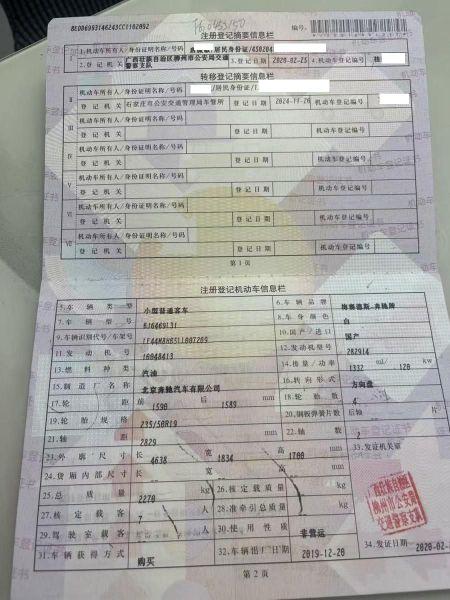 BE0D6993146243CC1102892
编号:
注册登记摘要信息栏
1.机动车所有人/身份证明名称/号码 居民身份证/450204
2.登记机关 广西壮族自治区柳州市公安局交通警察支队 3.登记日期 2020-02-25 4.机动车登记编号 桂
转移登记摘要信息栏
Ⅱ 机动车所有人/身份证明名称/号码 /居民身份证/1
登记机关 石家庄市公安交通管理局车管所 登记日期 2024-11-26 机动车登记编号
Ⅲ 机动车所有人/身份证明名称/号码
登记机关 登记日期 机动车登记编号
Ⅳ 机动车所有人/身份证明名称/号码
登记机关 登记日期 机动车登记编号
Ⅴ 机动车所有人/身份证明名称/号码
登记机关 登记日期 机动车登记编号
Ⅵ 机动车所有人/身份证明名称/号码
登记机关 登记日期 机动车登记编号
Ⅶ 机动车所有人/身份证明名称/号码
登记机关 登记日期 机动车登记编号
第1页
注册登记机动车信息栏
5.车辆类型 小型普通客车 6.车辆品牌 梅赛德斯-奔驰牌
7.车辆型号 8.车身颜色 白
9.车辆识别代号/车架号 10.国产/进口 国产
11.发动机号 12.发动机型号 282914
13.燃料种类 汽油 14.排量/功率 1332 ml/ 120 kw
15.制造厂名称 北京奔驰汽车有限公司 16.转向形式 方向盘
17.轮距 前 1590 后 1589 mm 18.轮胎数 4
19.轮胎规格 235/50R19 20.钢板弹簧片数 后轴 片
21.轴距 2829 mm 22.轴数 2
23.外廓尺寸 长 4638 宽 1834 高 1700 mm 33.发证机关章
24.货厢内部尺寸 长 宽 高 mm
25.总质量 2270 kg 26.核定载质量 kg
27.核定载客 7 人 28.准牵引总质量 kg
29.驾驶室载客 人 30.使用性质 非营运
31.车辆获得方式 购买 32.车辆出厂日期 2019-12-20 34.发证日期 2020-02-2
第2页